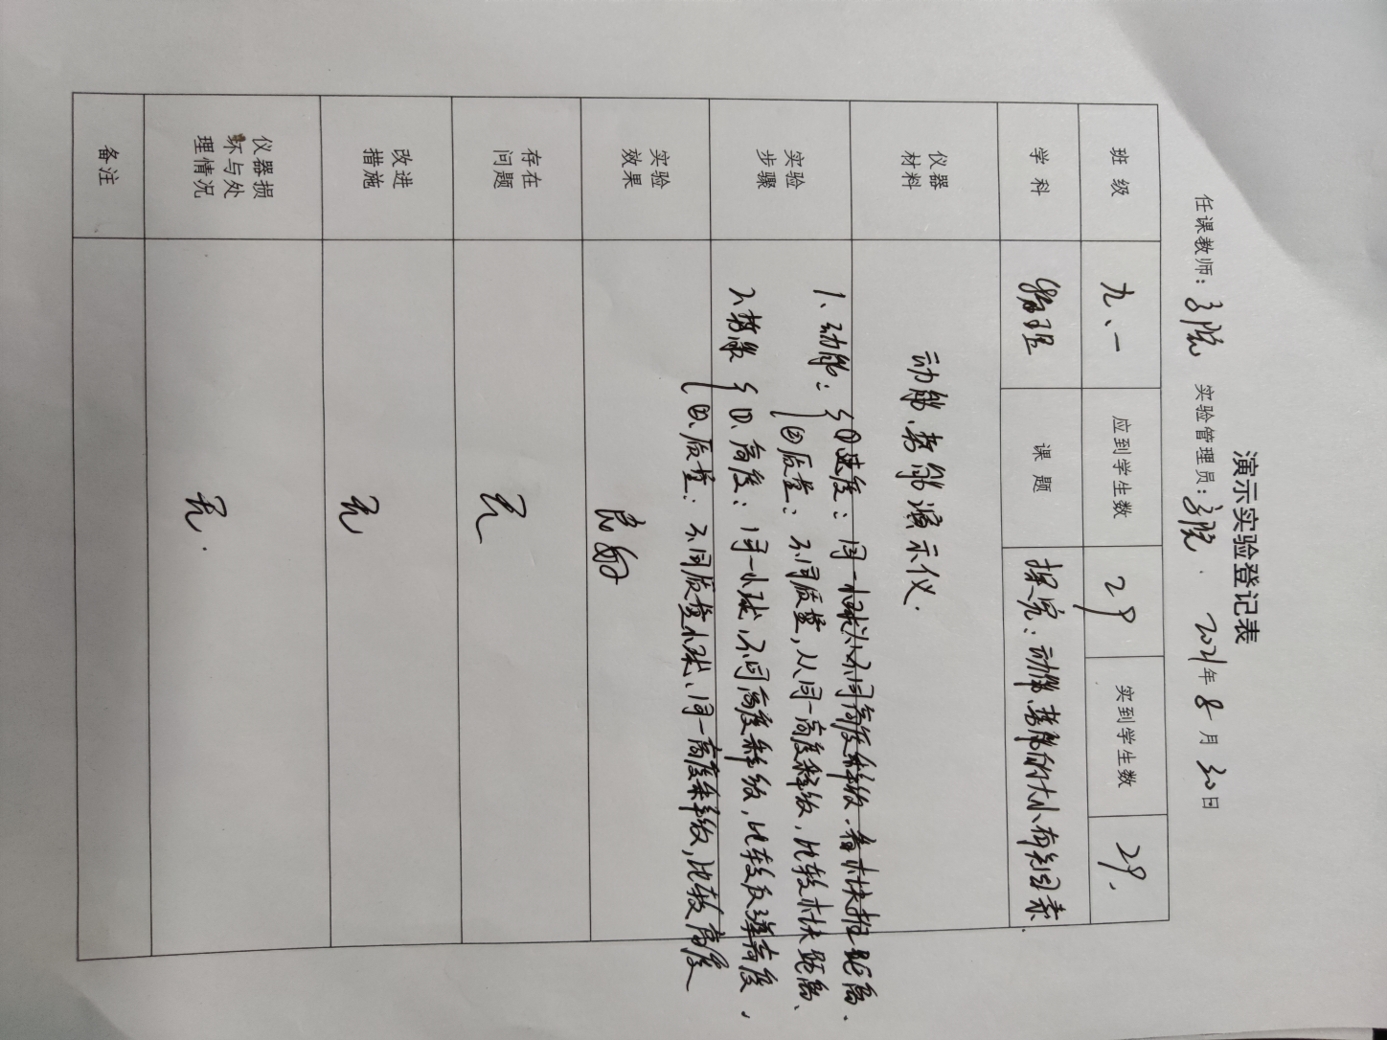 演示实验登记表
任课教师: 实验管理员: 2021年8月30日
班级 九、一 应到学生数 29 实到学生数 29.
学科 物理 课题 探究:动能、势能的大小有关因素.
仪器材料 动能、势能演示仪.
实验步骤
1、动能: ①速度: 同一小球从不同高度释放.看木块推距离.
②质量: 不同质量,从同一高度释放,比较木块距离、
2、势能 ①、高度: 同一小球、不同高度释放,比较反弹高度,
②、质量: 不同质量小球、同一高度释放,比较高度
实验效果 良好
存在问题 无
改进措施 无
仪器损坏与处理情况 无.
备注